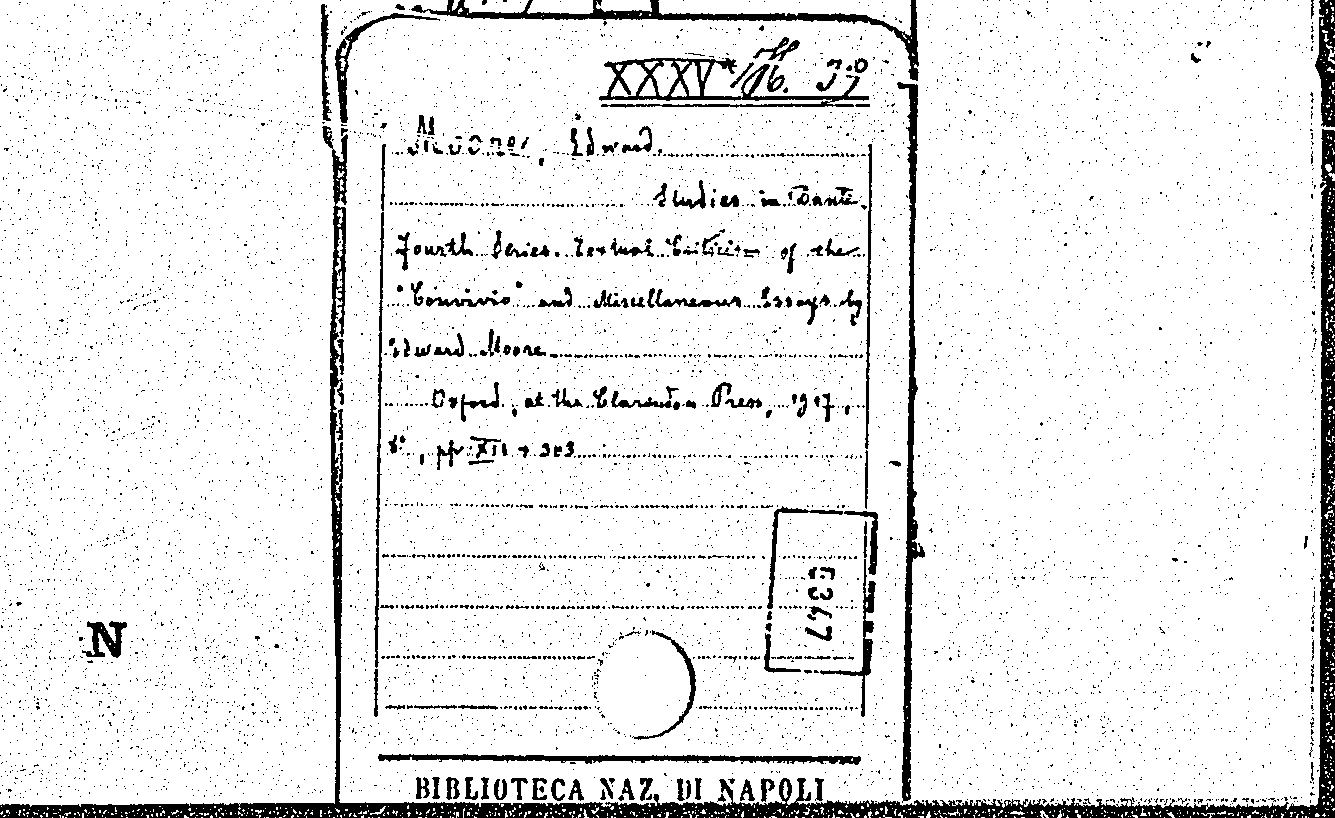 XXXV* H. 39
Moore, Edward.
Studies in Dante.
Fourth Series. Textual Criticism of the
"Convivio" and Miscellaneous Essays by
Edward Moore
Oxford, at the Clarendon Press, 1917,
8°, pp XII + 303
6347
N
BIBLIOTECA NAZ. DI NAPOLI